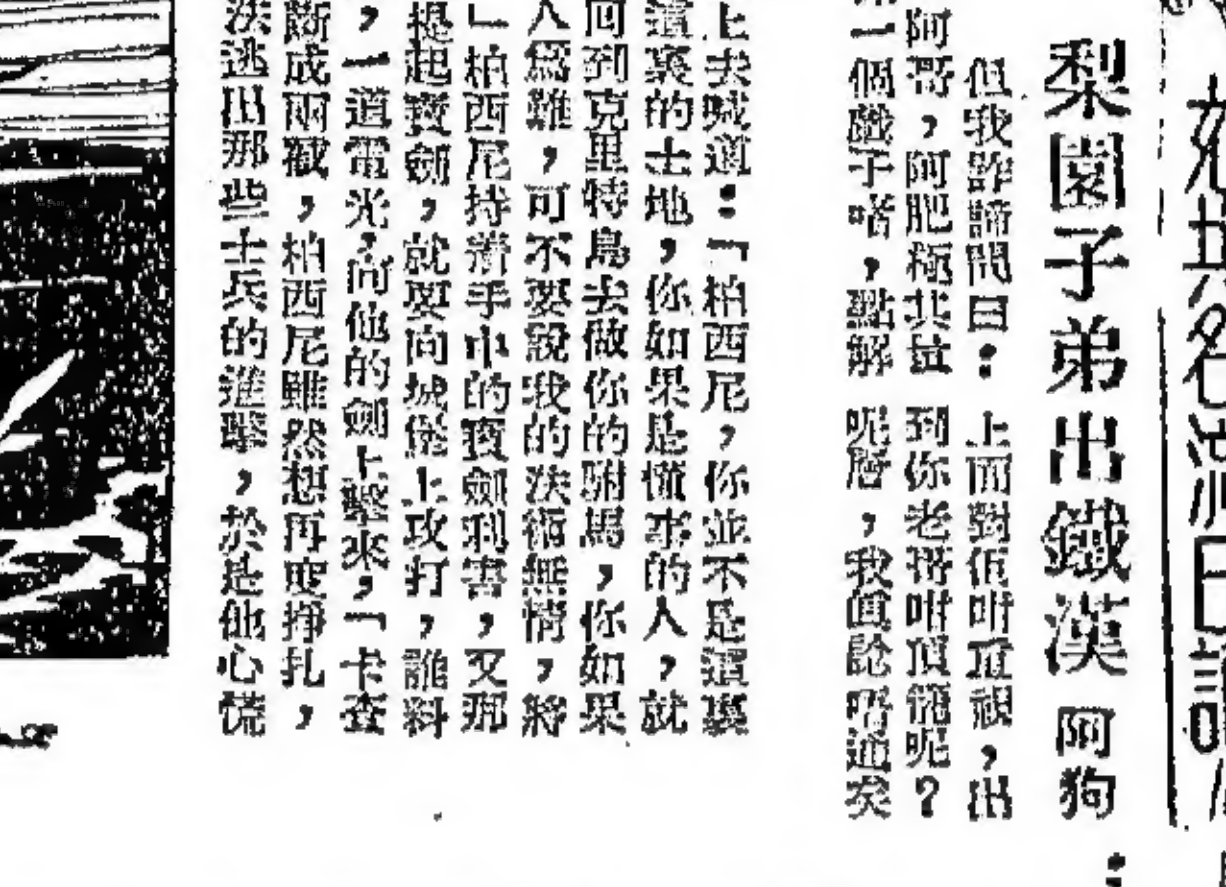 梨園子弟出鐵漢 阿狗
但我詐諦問曰：上面對佢咁重視，出
阿哥，阿肥極其量 到你老搭咁頂龍呢？
一個戲子啫，點解 呢層，我眞諗唔通矣
上去喊道：「柏西尼，你並不是這裏
這裏的土地，你如果是懂事的人，就
回到克里特島去做你的駙馬，你如果
人爲難，可不要說我的法術無情，將
」柏西尼持着手中的寶劍利害，又那
提起寶劍，就要向城堡上攻打，誰料
，一道電光，向他的劍上擊來，「卡查
斷成兩截，柏西尼雖然想再度掙扎，
法逃出那些士兵的進擊，於是他心慌